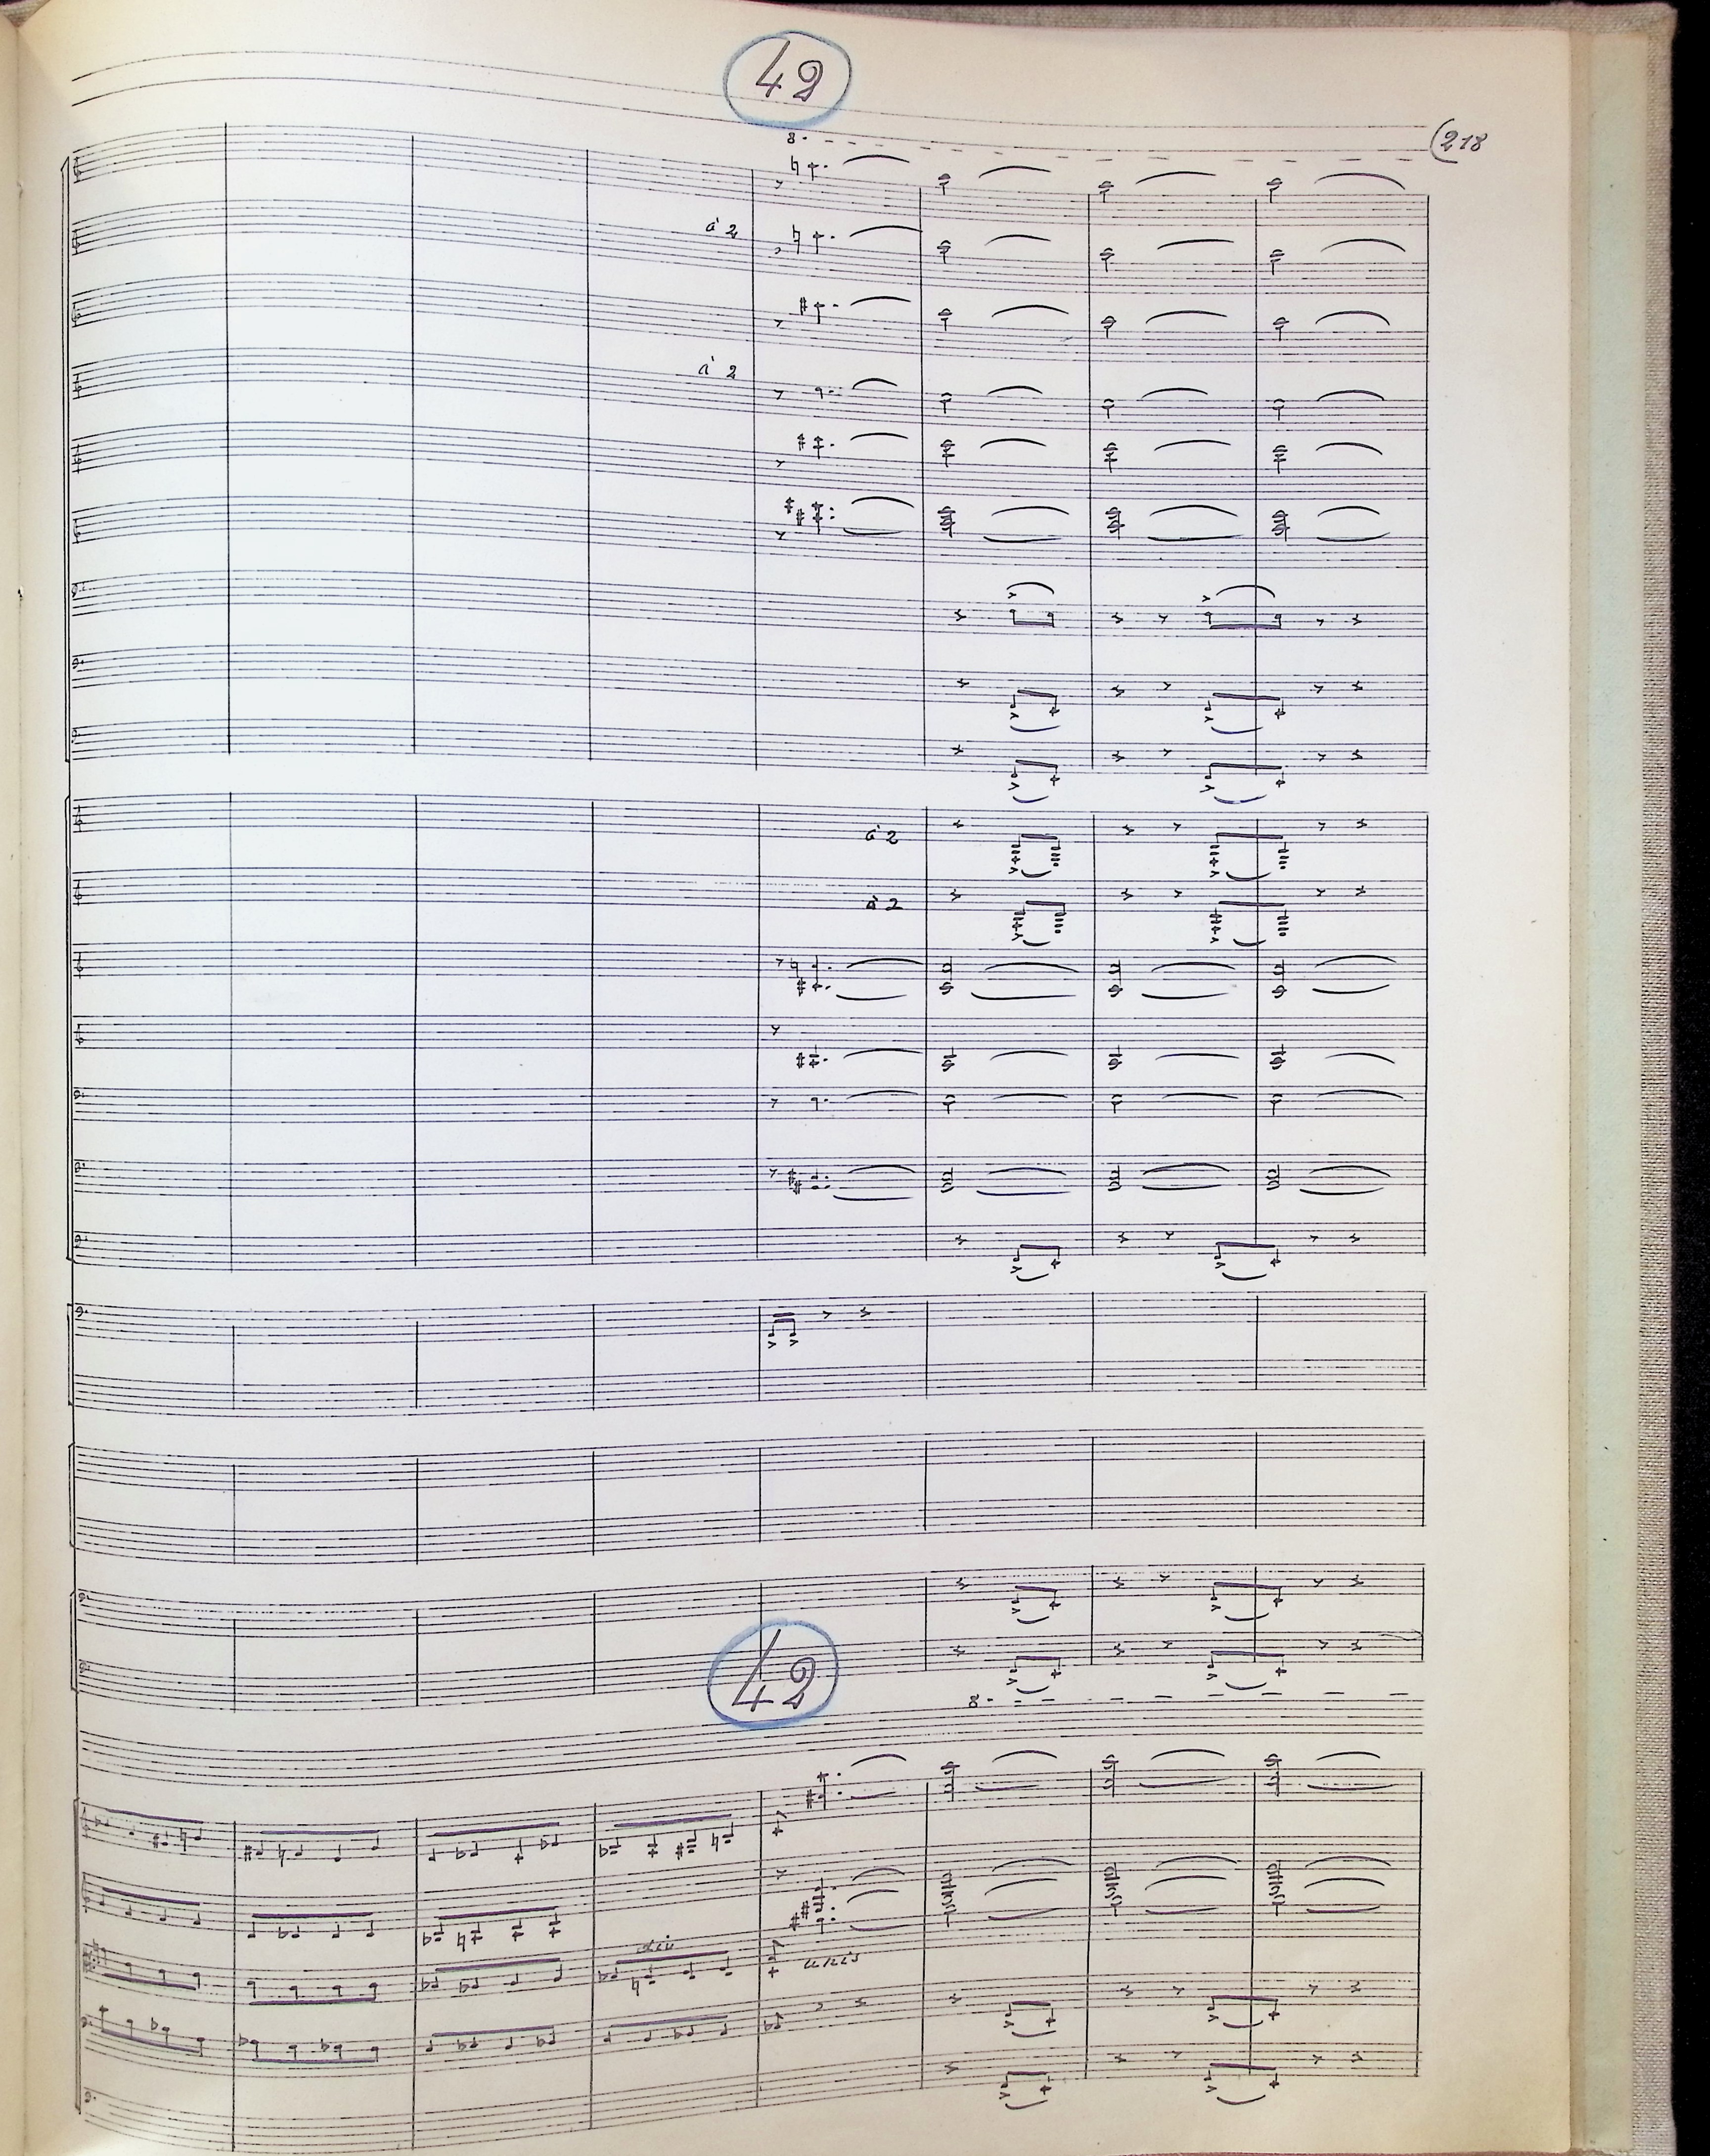 42
(218
8
a 2
a 2
a 2
a 2
42
8
div
unis